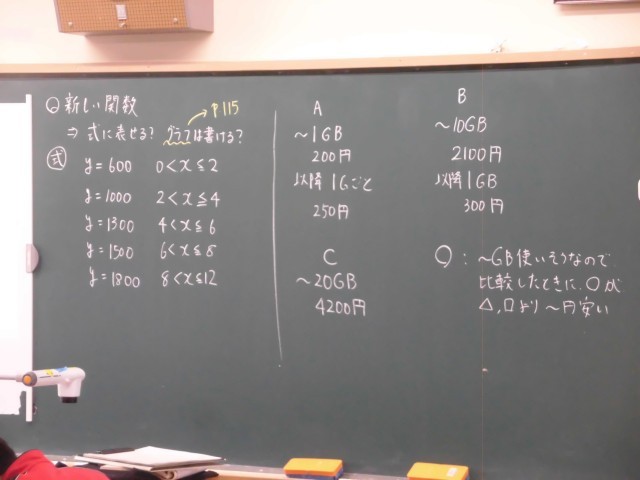 Q 新しい関数
P115
⇒ 式に表せる? グラフは書ける?
式
y=600 0<x≦2
y=1000 2<x≦4
y=1300 4<x≦6
y=1500 6<x≦8
y=1800 8<x≦12
A
~1GB
200円
以降1Gごと
250円
B
~10GB
2100円
以降1GB
300円
C
~20GB
4200円
○:~GB使いそうなので
比較したときに、○が
△,□より~円安い